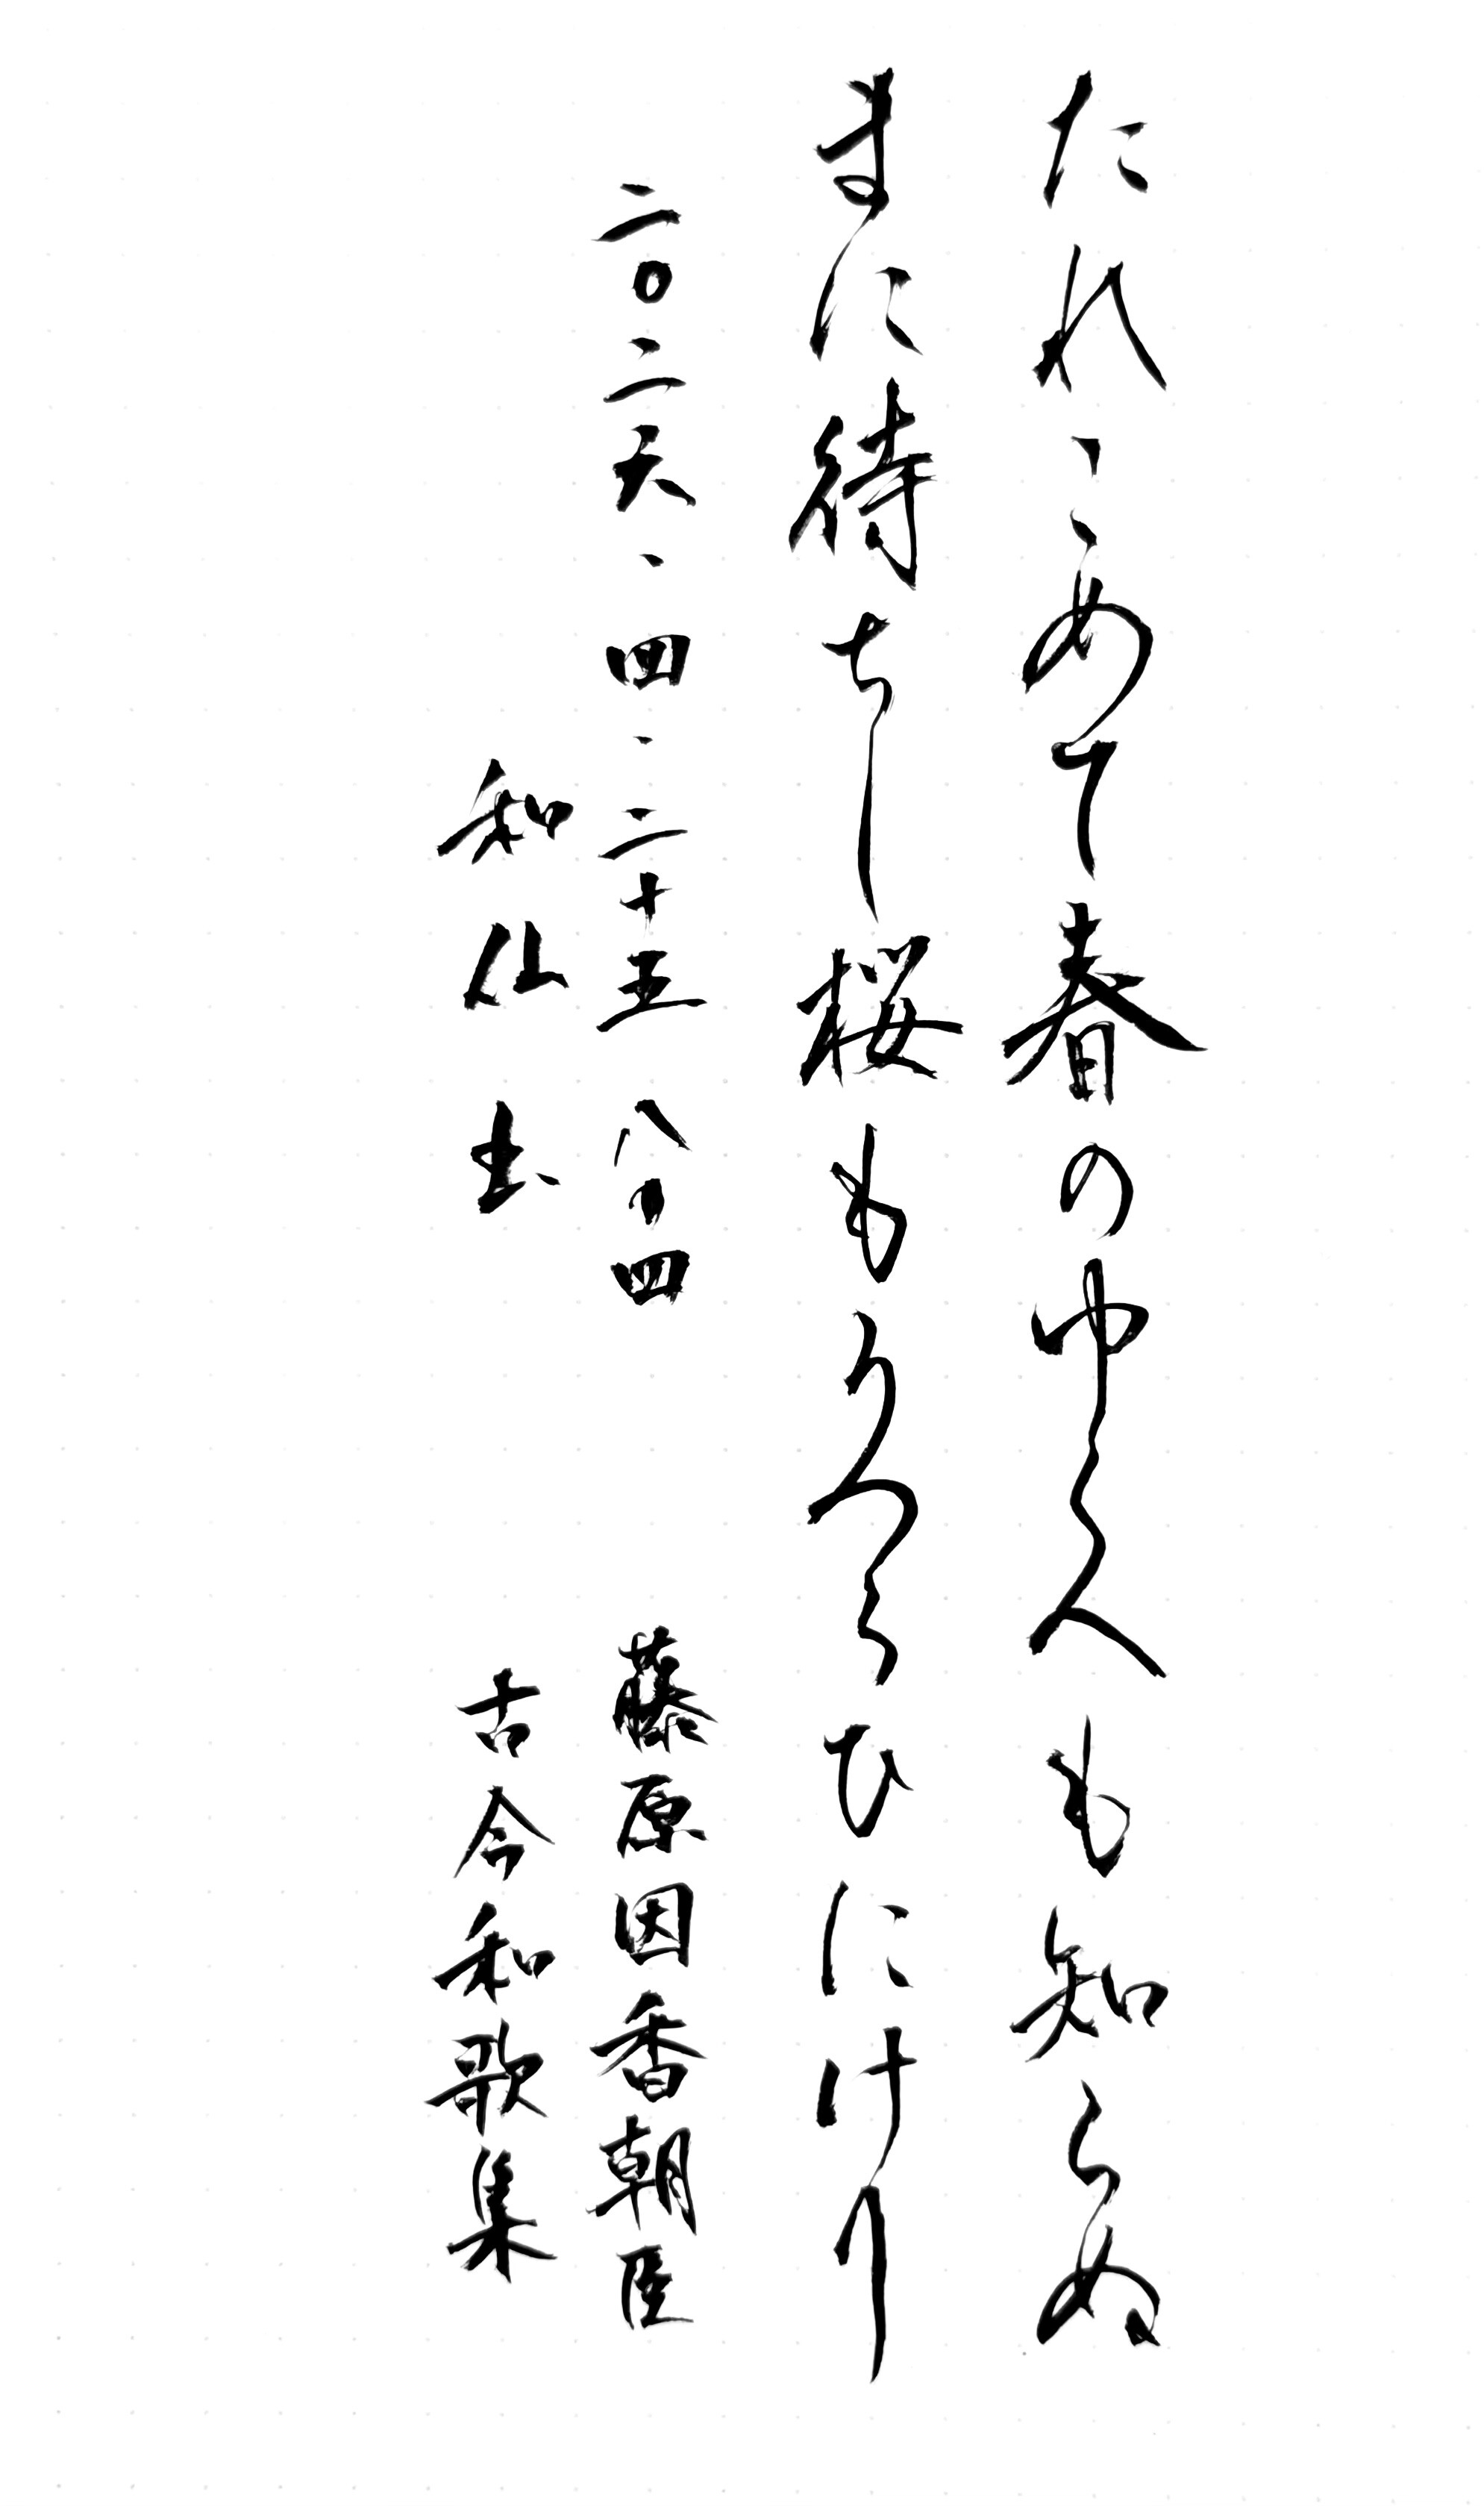 たれこめて春のゆくへも知らぬ
まに待ちし桜もうつろひにけり
二〇二六、四、二十五 八〇四
藤原因香朝臣
知仙士
古今和歌集